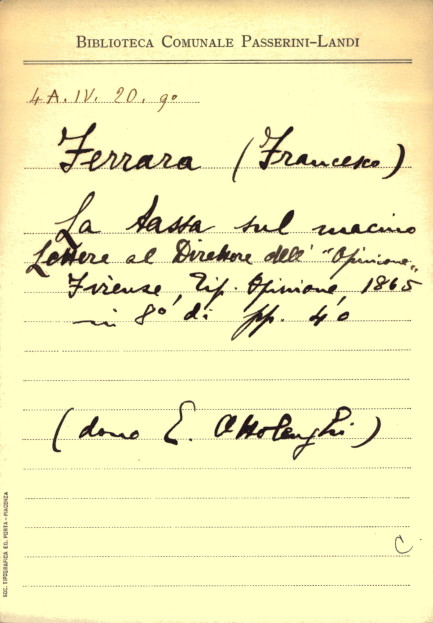 BIBLIOTECA COMUNALE PASSERINI-LANDI
4A. IV. 20. 9°
Ferrara (Francesco)
La tassa sul macino
Lettere al Direttore dell' "Opinione"
Firenze, Tip. Opinione, 1865
in 8° di pp. 40
(dono E. Ottolenghi)
C
SOC. TIPOGRAFICA ED. PORTA - PIACENZA